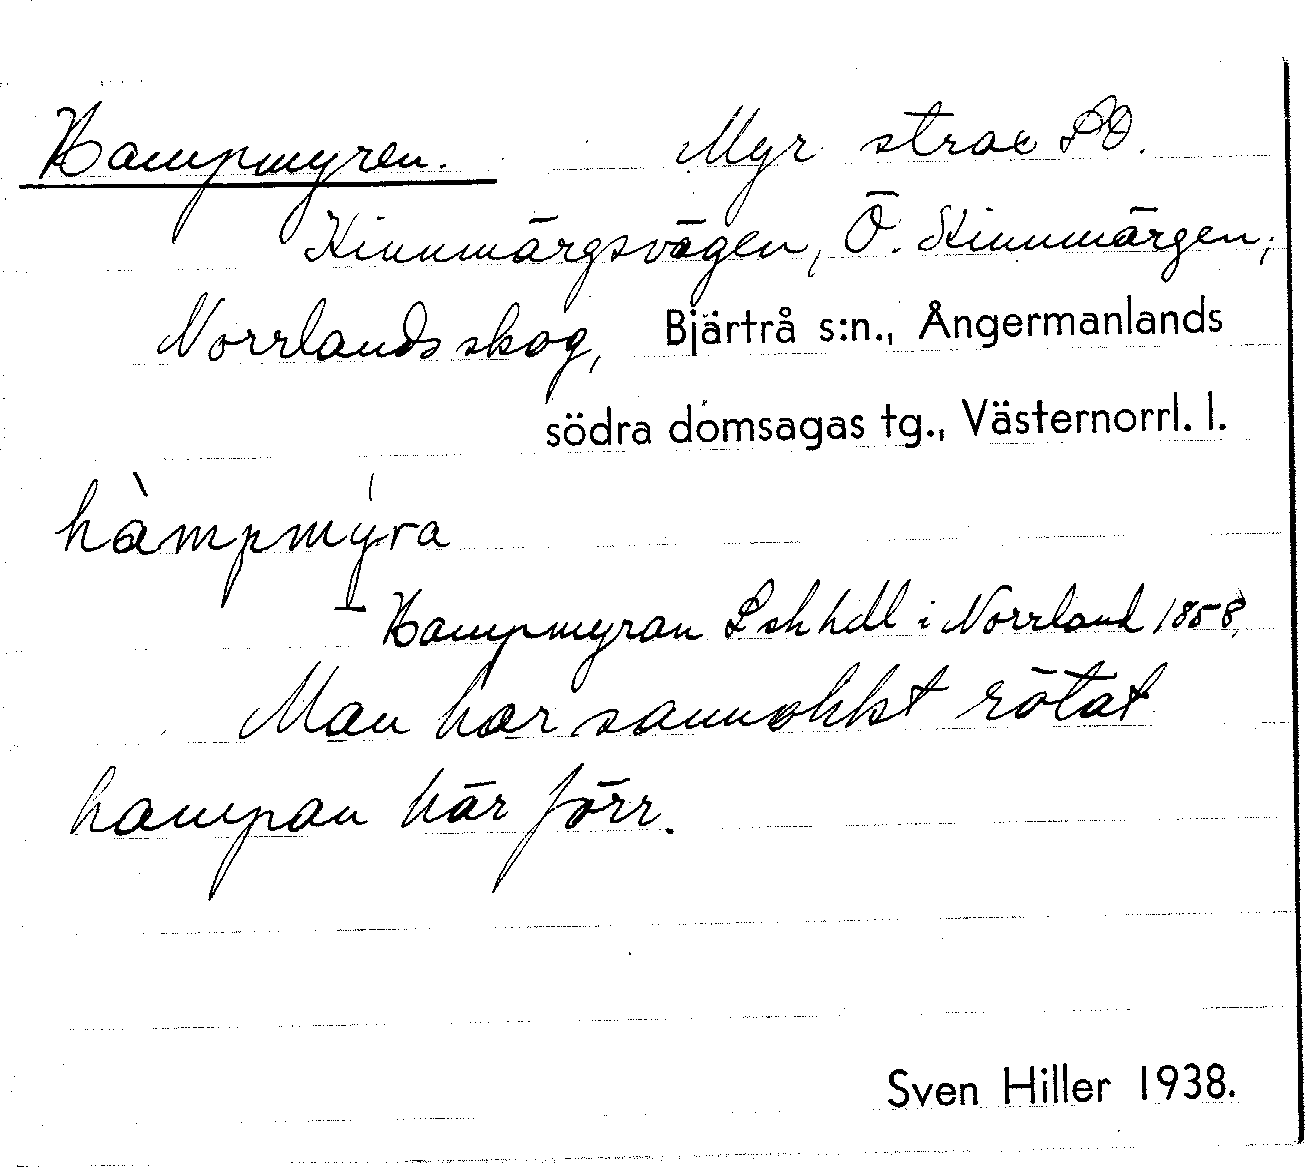 Hampmyren. Myr strax SO.
Kinnmärgsvägen, Ö. Kinnmärgen,
Norrlandsskog, Bjärtrå s:n., Ångermanlands
södra domsagas tg., Västernorrl. l.
hàmpmýra
Hampmyran Lskhdl i Norrland 1858.
Man har sannolikt rötat
hampan här förr.
Sven Hiller 1938.